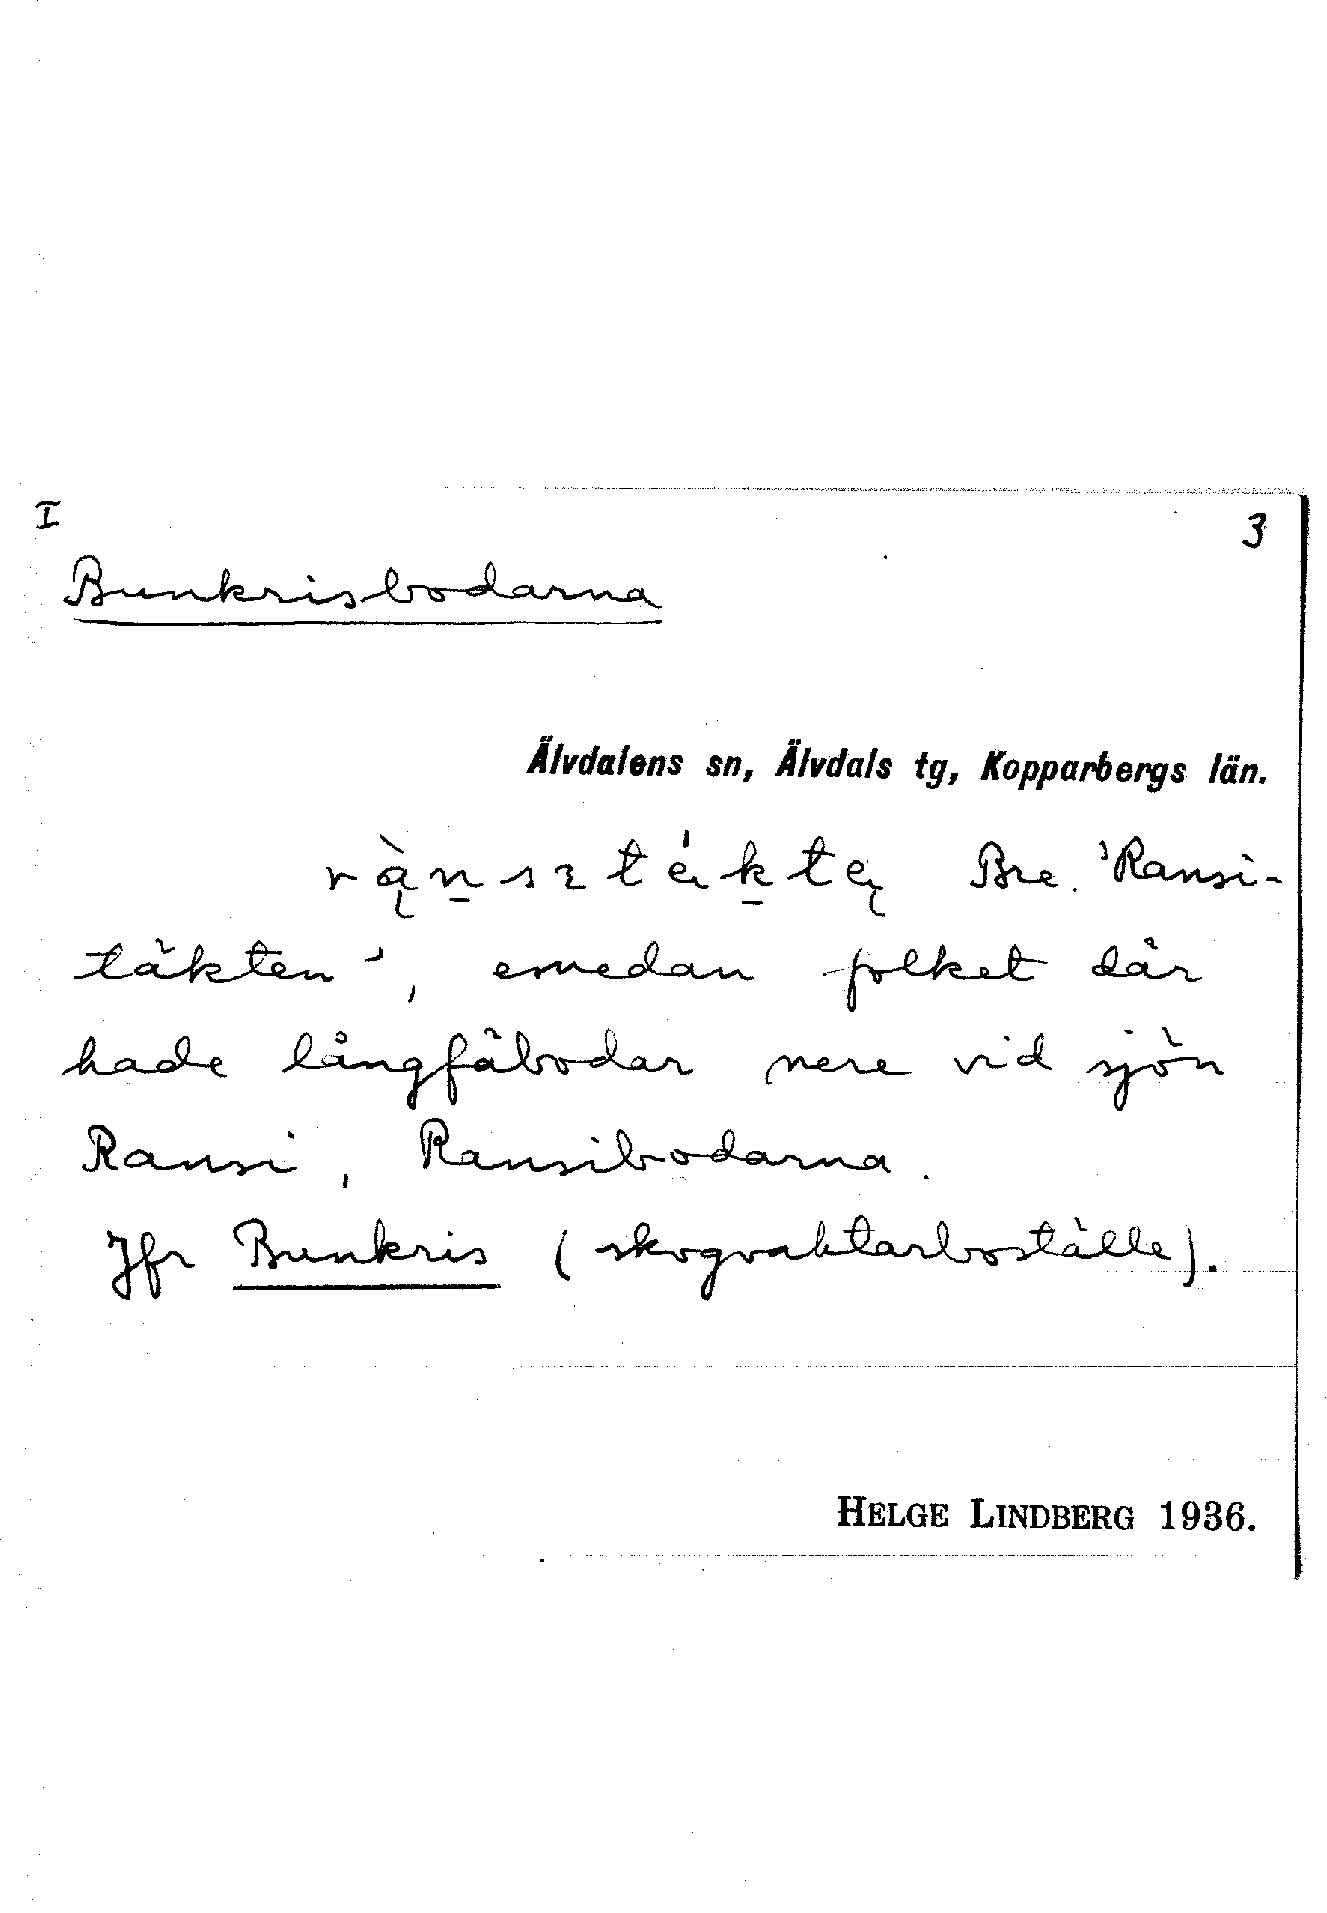 I
3
Bunkrisbodarna
Älvdalens sn, Älvdals tg, Kopparbergs län.
Bre. 'Ransi-
täkten', emedan folket där
hade långfäbodar nere vid sjön
Ransi, Ransibodarna.
Jfr Bunkris (skogvaktarboställe).
HELGE LINDBERG 1936.